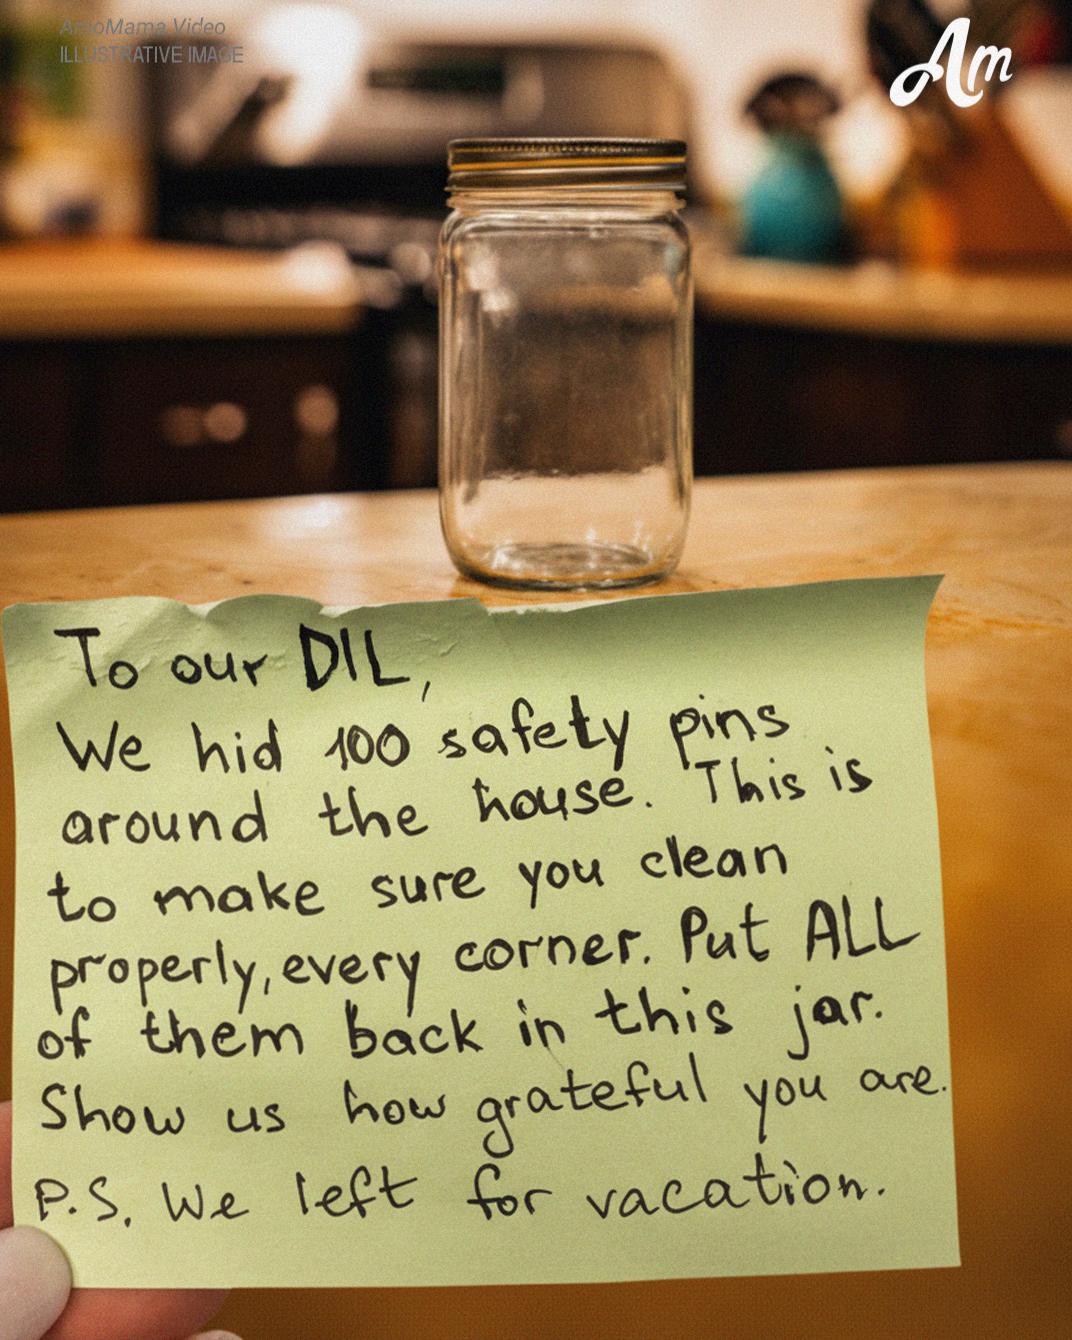 AmoMama Video
ILLUSTRATIVE IMAGE
Am
To our DIL,
We hid 100 safety pins
around the house. This is
to make sure you clean
properly, every corner. Put ALL
of them back in this jar.
Show us how grateful you are.
P.S. We left for vacation.